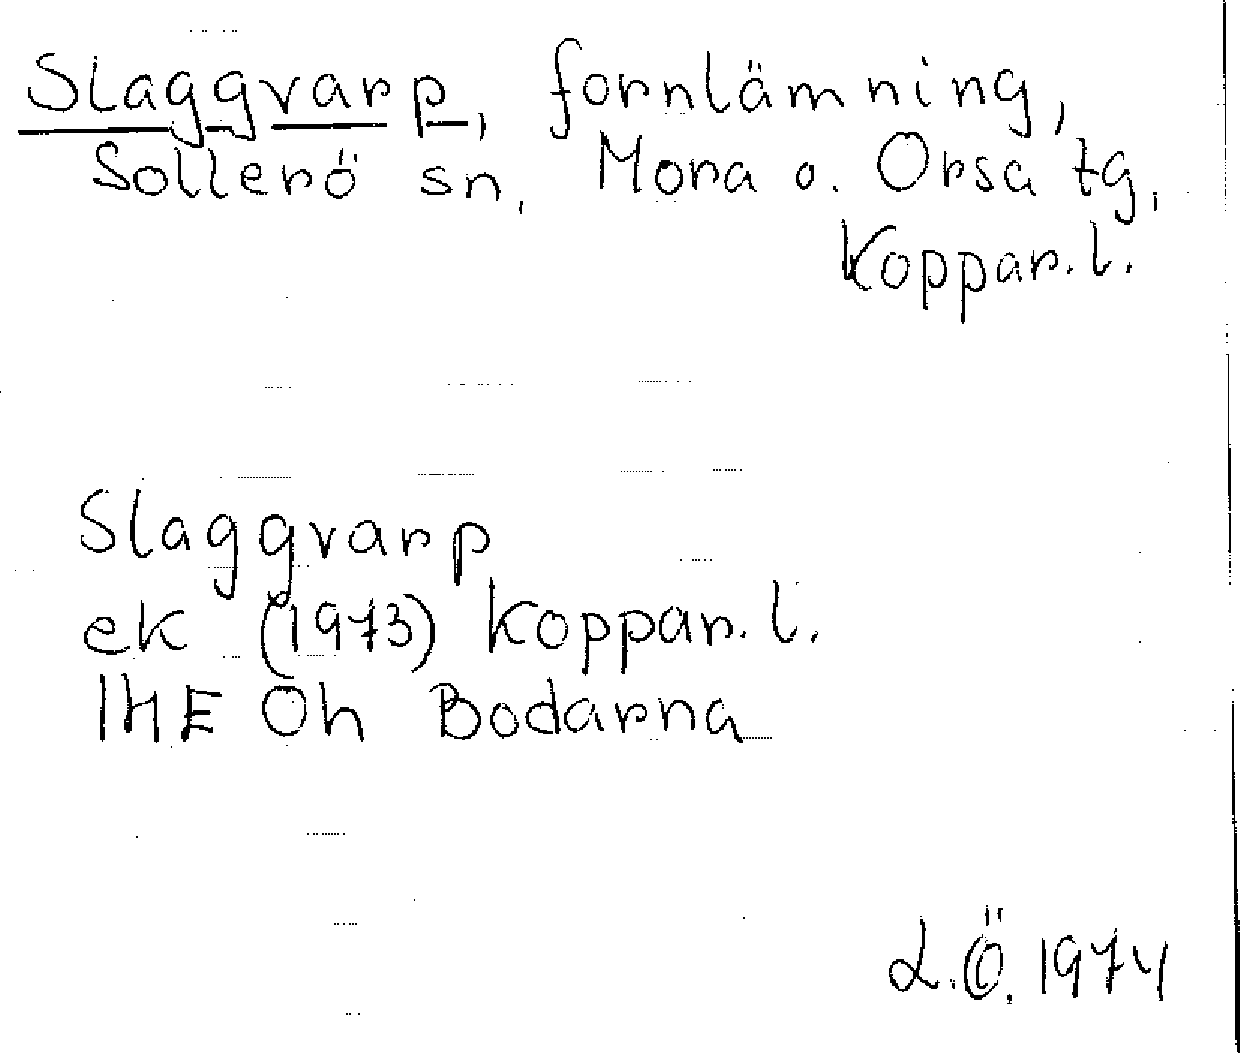 Slaggvarp, fornlämning,
Sollerö sn, Mora o. Orsa tg,
Koppar. l.
Slaggvarp
ek (1973) Koppar. l.
14E Öh Bodarna
L.Ö. 1974